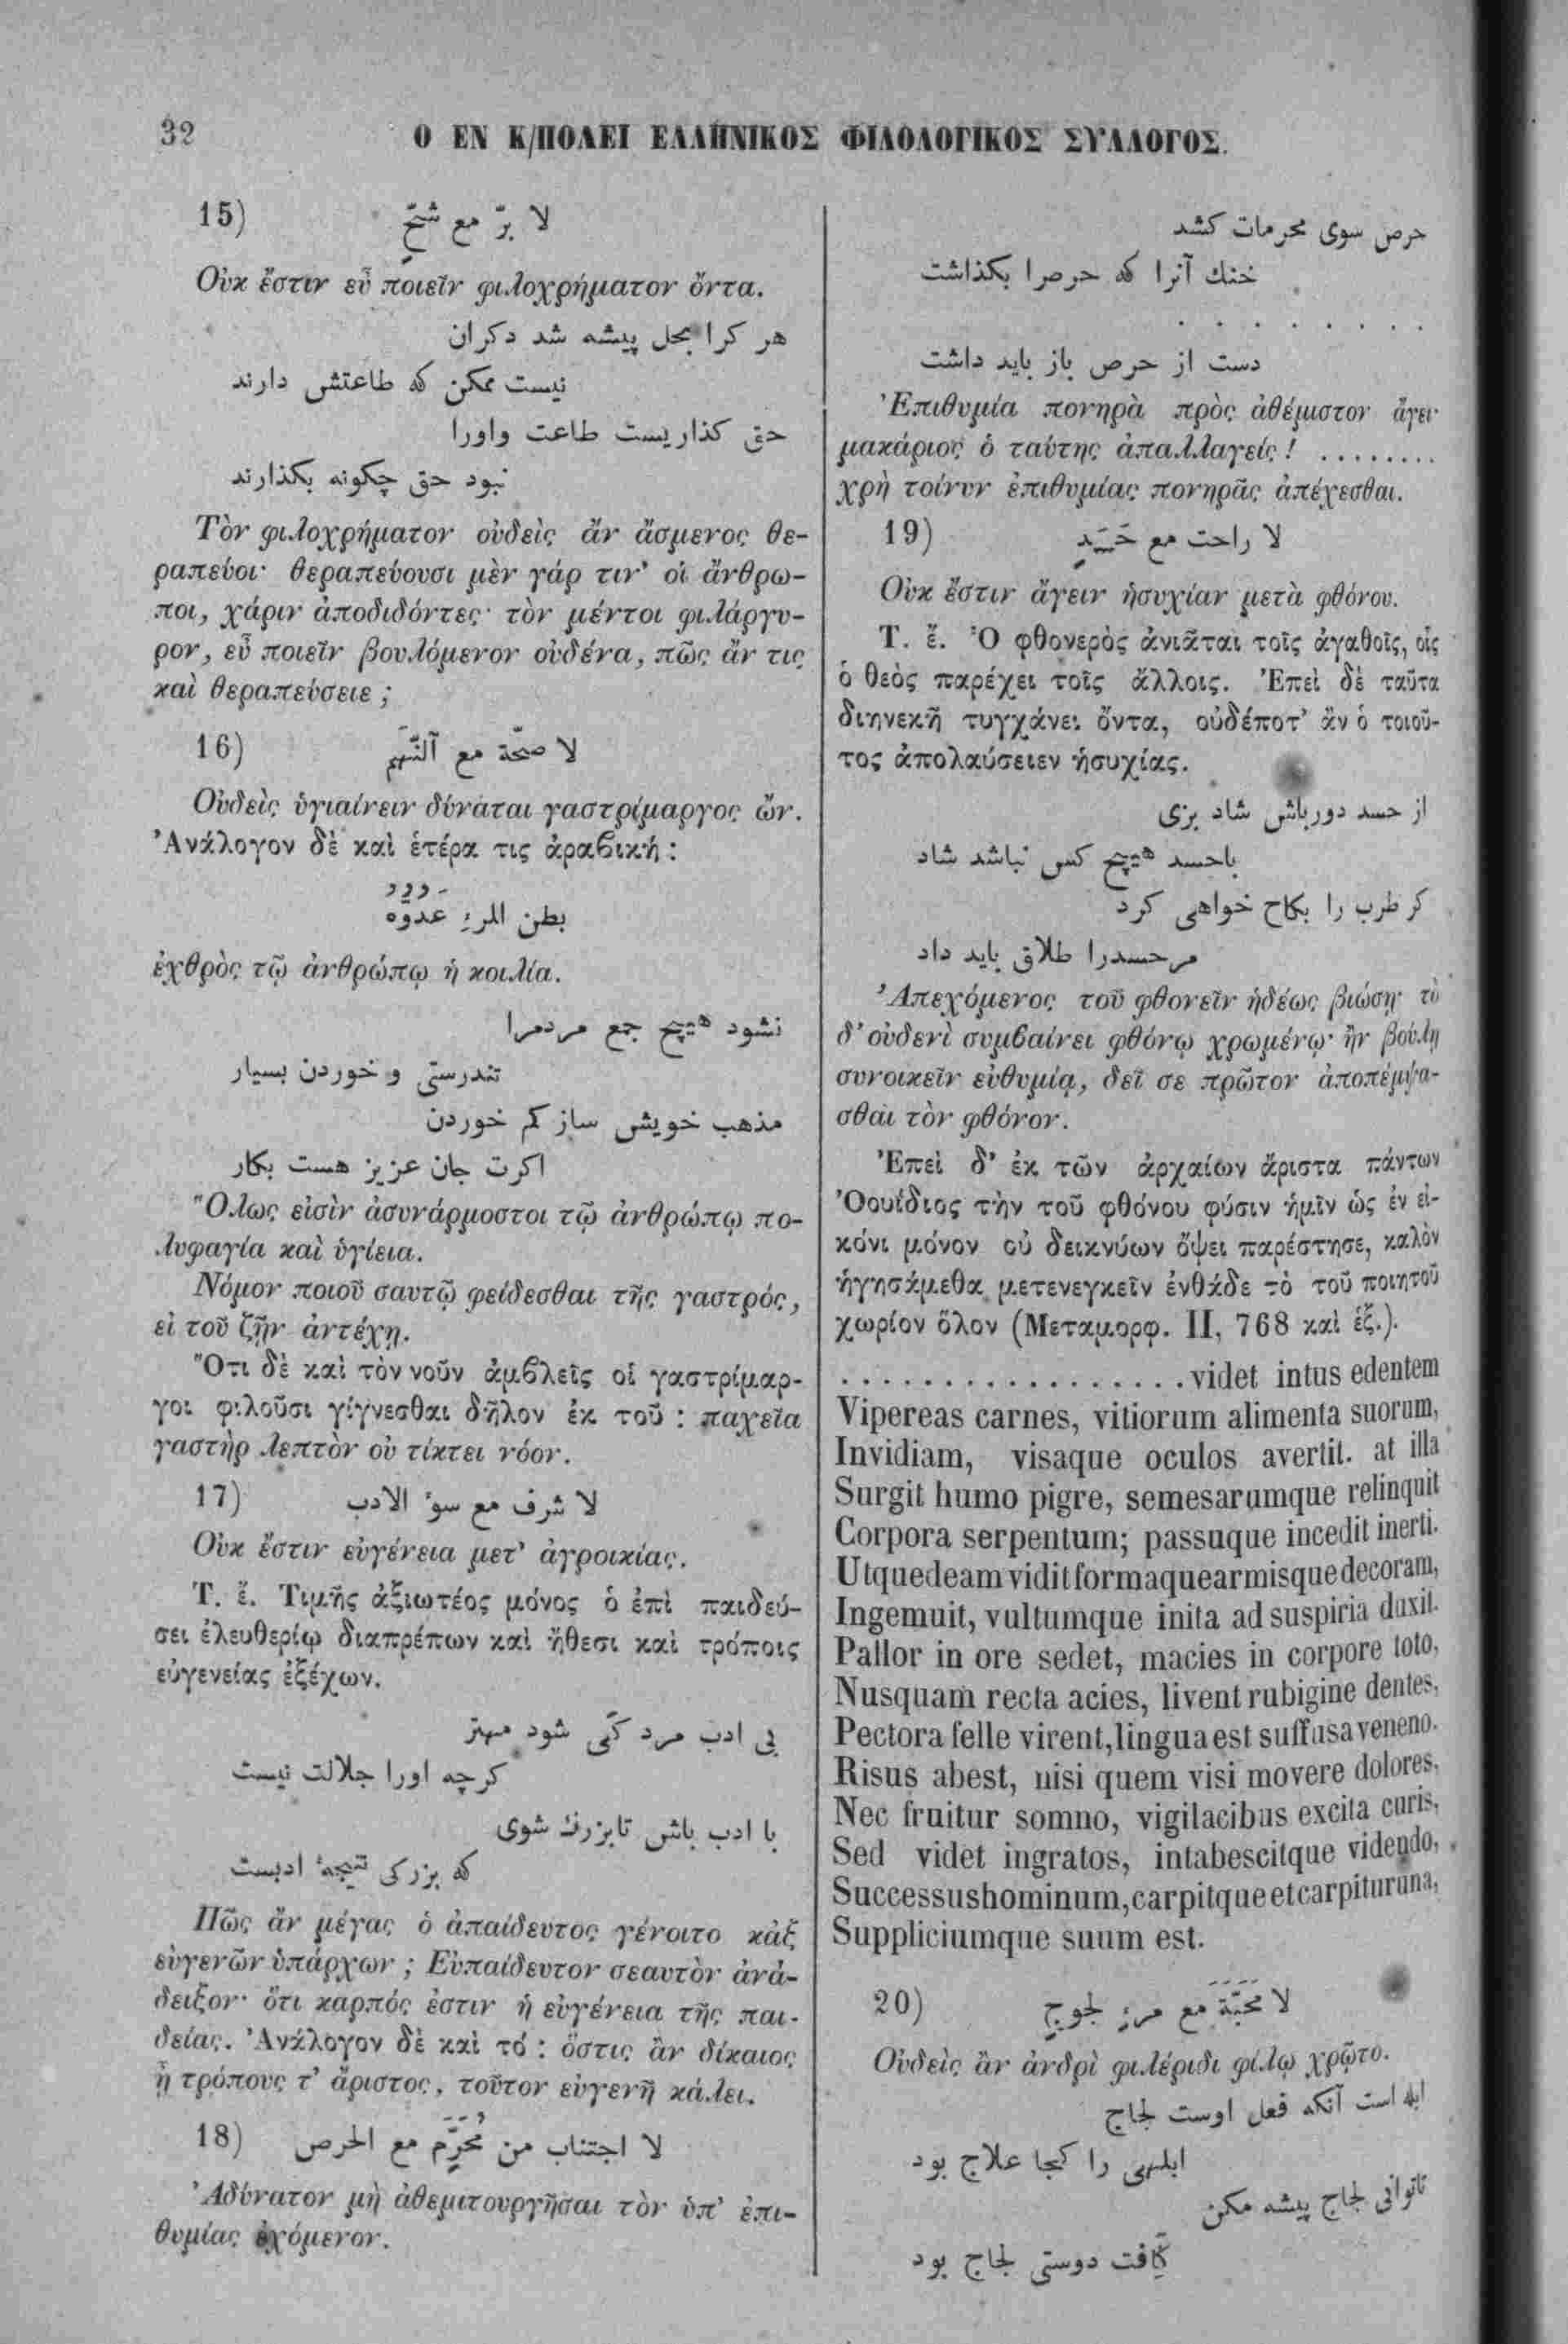 32
Ο ΕΝ Κ/ΠΟΛΕΙ ΕΛΛΗΝΙΚΟΣ ΦΙΛΟΛΟΓΙΚΟΣ ΣΥΛΛΟΓΟΣ.
15) لا برّ مع شحّ
Οὐκ ἔστιν εὖ ποιεῖν φιλοχρήματον ὄντα.
هر كرا بخل پيشه شد دكران
نيست ممكن كه طاعتش دارند
حق كذاريست طاعت واورا
نبود حق چكونه بكذارند
Τὸν φιλοχρήματον οὐδεὶς ἂν ἄσμενος θε-
ραπεύοι· θεραπεύουσι μὲν γάρ τιν' οἱ ἄνθρω-
ποι, χάριν ἀποδιδόντες· τὸν μέντοι φιλάργυ-
ρον, εὖ ποιεῖν βουλόμενον οὐδένα, πῶς ἄν τις
καὶ θεραπεύσειε ;
16) لا صحّة مع آلنّهم
Οὐδεὶς ὑγιαίνειν δύναται γαστρίμαργος ὤν.
Ἀνάλογον δὲ καὶ ἑτέρα τις ἀραβική :
بطن المرء عدوّه
ἐχθρὸς τῷ ἀνθρώπῳ ἡ κοιλία.
نشود هيچ جمع مردمرا
تندرستى و خوردن بسيار
مذهب خويش ساز كم خوردن
اكرت جان عزيز هست بكار
Ὅλως εἰσὶν ἀσυνάρμοστοι τῷ ἀνθρώπῳ πο-
λυφαγία καὶ ὑγίεια.
Νόμον ποιοῦ σαυτῷ φείδεσθαι τῆς γαστρός,
εἰ τοῦ ζῆν ἀντέχῃ.
Ὅτι δὲ καὶ τὸν νοῦν ἀμβλεῖς οἱ γαστρίμαρ-
γοι φιλοῦσι γίγνεσθαι δῆλον ἐκ τοῦ : παχεῖα
γαστὴρ λεπτὸν οὐ τίκτει νόον.
17) لا شرف مع سوء الادب
Οὐκ ἔστιν εὐγένεια μετ' ἀγροικίας.
Τ. ἔ. Τιμῆς ἀξιωτέος μόνος ὁ ἐπὶ παιδεύ-
σει ἐλευθερίῳ διαπρέπων καὶ ἤθεσι καὶ τρόποις
εὐγενείας ἐξέχων.
بى ادب مرد كى شود مهتر
كرچه اورا جلالت نيست
با ادب باش تابزرك شوى
كه بزركى نتيجهٔ ادبست
Πῶς ἂν μέγας ὁ ἀπαίδευτος γένοιτο κἀξ
εὐγενῶν ὑπάρχων ; Εὐπαίδευτον σεαυτὸν ἀνά-
δειξον· ὅτι καρπός ἐστιν ἡ εὐγένεια τῆς παι-
δείας. Ἀνάλογον δὲ καὶ τό : ὅστις ἂν δίκαιος
ᾖ τρόπους τ' ἄριστος, τοῦτον εὐγενῆ κάλει.
18) لا اجتناب من مُحَرَّم مع الحرص
Ἀδύνατον μὴ ἀθεμιτουργῆσαι τὸν ὑπ' ἐπι-
θυμίας ἐχόμενον.
حرص سوى محرمات كشد
خنك آنرا كه حرصرا بكذاشت
. . . . . . . . .
دست از حرص باز بايد داشت
Ἐπιθυμία πονηρὰ πρὸς ἀθέμιστον ἄγει·
μακάριος ὁ ταύτης ἀπαλλαγείς ! ........
χρὴ τοίνυν ἐπιθυμίας πονηρᾶς ἀπέχεσθαι.
19) لا راحت مع حَسَدٍ
Οὐκ ἔστιν ἄγειν ἡσυχίαν μετὰ φθόνου.
Τ. ἔ. Ὁ φθονερὸς ἀνιᾶται τοῖς ἀγαθοῖς, οἷς
ὁ θεὸς παρέχει τοῖς ἄλλοις. Ἐπεὶ δὲ ταῦτα
διηνεκῆ τυγχάνει ὄντα, οὐδέποτ' ἂν ὁ τοιοῦ-
τος ἀπολαύσειεν ἡσυχίας.
از حسد دورباش شاد بزى
باحسد هيچ كس نباشد شاد
كر طرب را بكاح خواهى كرد
مرحسدرا طلاق بايد داد
Ἀπεχόμενος τοῦ φθονεῖν ἡδέως βιώσῃ· τὸ
δ' οὐδενὶ συμβαίνει φθόνῳ χρωμένῳ· ἢν βούλῃ
συνοικεῖν εὐθυμίᾳ, δεῖ σε πρῶτον ἀποπέμψα-
σθαι τὸν φθόνον.
Ἐπεὶ δ' ἐκ τῶν ἀρχαίων ἄριστα πάντων
Ὀουΐδιος τὴν τοῦ φθόνου φύσιν ἡμῖν ὡς ἐν εἰ-
κόνι μόνον οὐ δεικνύων ὄψει παρέστησε, καλὸν
ἡγησάμεθα μετενεγκεῖν ἐνθάδε τὸ τοῦ ποιητοῦ
χωρίον ὅλον (Μεταμορφ. II, 768 καὶ ἑξ.).
. . . . . . . . . . . . . . . . . videt intus edentem
Vipereas carnes, vitiorum alimenta suorum,
Invidiam, visaque oculos avertit. at illa
Surgit humo pigre, semesarumque relinquit
Corpora serpentum; passuque incedit inerti.
Utque deam vidit formaque armisque decoram,
Ingemuit, vultumque inita ad suspiria duxit.
Pallor in ore sedet, macies in corpore toto,
Nusquam recta acies, livent rubigine dentes,
Pectora felle virent, lingua est suffusa veneno.
Risus abest, nisi quem visi movere dolores,
Nec fruitur somno, vigilacibus excita curis,
Sed videt ingratos, intabescitque videndo,
Successus hominum, carpitque et carpitur una,
Suppliciumque suum est.
20) لا مَحَبَّةَ مع مرءٍ لجوجٍ
Οὐδεὶς ἂν ἀνδρὶ φιλέριδι φίλῳ χρῷτο.
ابله است آنكه فعل اوست لجاج
ابلهى را كجا علاج بود
تاتوانى لجاج پيشه مكن
كآفت دوستى لجاج بود